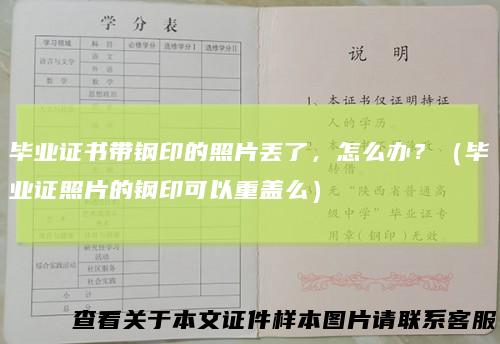 学分表
学习领域 科目 必修学分 选修学分Ⅰ 选修学分Ⅱ
语言与文学 语文
外语
数学 数学
思想政治
综合实践活动 研究性学习活动
社区服务
社会实践
小计
总分
说明
1、本证书仅证明持证
人的学历。
转借。
无“陕西省普通高
级中学”毕业证专
用章(钢印)无效。
毕业证书带钢印的照片丢了，怎么办？（毕
业证照片的钢印可以重盖么）
查看关于本文证件样本图片请联系客服